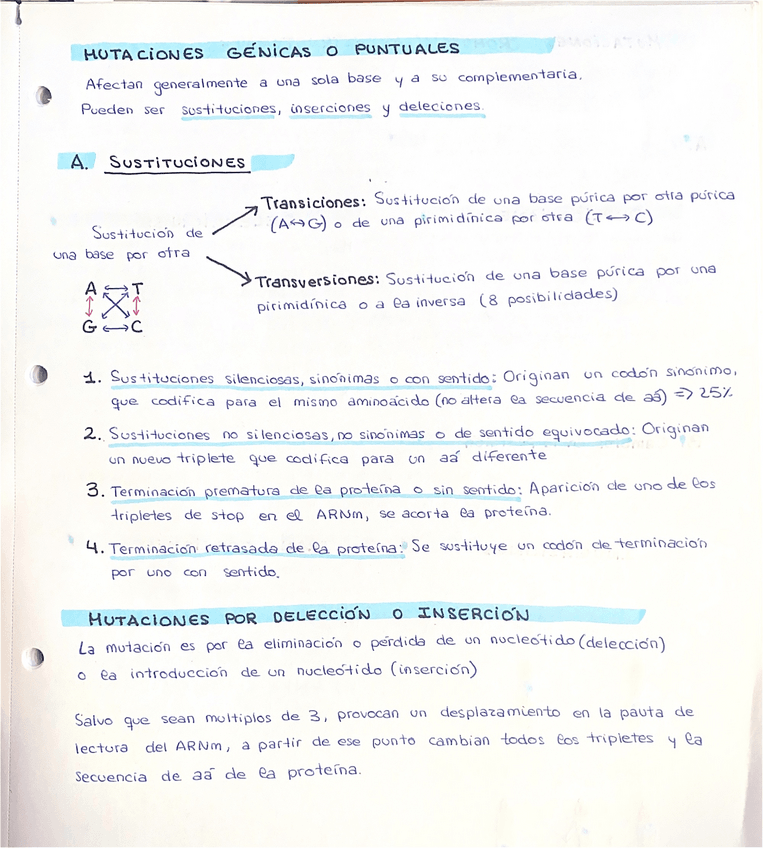 MUTACIONES GÉNICAS O PUNTUALES
Afectan generalmente a una sola base y a su complementaria.
Pueden ser sustituciones, inserciones y deleciones.
A. SUSTITUCIONES
Sustitución de
una base por otra
Transiciones: Sustitución de una base púrica por otra púrica
(A↔G) o de una pirimidínica por otra (T↔C)
Transversiones: Sustitución de una base púrica por una
pirimidínica o a la inversa (8 posibilidades)
A ↔ T
G ↔ C
1. Sustituciones silenciosas, sinónimas o con sentido: Originan un codón sinónimo,
que codifica para el mismo aminoácido (no altera la secuencia de aá) => 25%
2. Sustituciones no silenciosas, no sinónimas o de sentido equivocado: Originan
un nuevo triplete que codifica para un aá diferente
3. Terminación prematura de la proteína o sin sentido: Aparición de uno de los
tripletes de stop en el ARNm, se acorta la proteína.
4. Terminación retrasada de la proteína: Se sustituye un codón de terminación
por uno con sentido.
MUTACIONES POR DELECCIÓN O INSERCIÓN
La mutación es por la eliminación o pérdida de un nucleótido (delección)
o la introducción de un nucleótido (inserción)
Salvo que sean multiplos de 3, provocan un desplazamiento en la pauta de
lectura del ARNm, a partir de ese punto cambian todos los tripletes y la
secuencia de aá de la proteína.